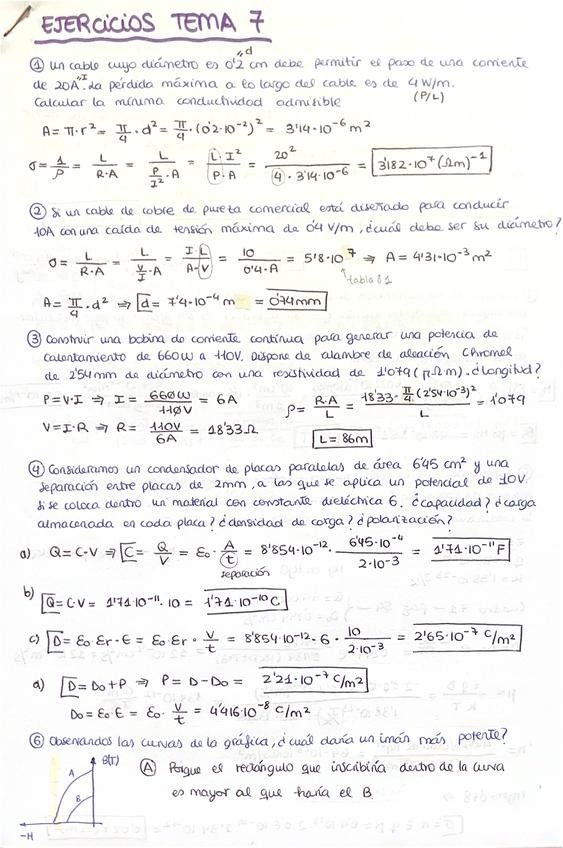 EJERCICIOS TEMA 7
① Un cable cuyo diámetro es 0'2 "d cm debe permitir el paso de una corriente
de 20A "I. La pérdida máxima a lo largo del cable es de 4 W/m.
Calcular la mínima conductividad admisible (P/L)
A = π·r² = π/4 · d² = π/4 · (0'2·10⁻²)² = 3'14·10⁻⁶ m²
σ = 1/ρ = L/(R·A) = L/(P/I² · A) = (L·I²)/(P·A) = 20²/(4·3'14·10⁻⁶) = 3'182·10⁷ (Ωm)⁻¹
② Si un cable de cobre de pureza comercial está diseñado para conducir
10A con una caída de tensión máxima de 0'4 V/m, ¿cuál debe ser su diámetro?
σ = L/(R·A) = L/(V/I · A) = (I·L)/(A·V) = 10/(0'4·A) = 5'8·10⁷ ⇒ A = 4'31·10⁻³ m²
tabla 8.1
A = π/4 · d² ⇒ d = 7'4·10⁻⁴ m = 0'74mm
③ Construir una bobina de corriente continua para generar una potencia de
calentamiento de 660W a 110V. Dispone de alambre de aleación Chromel
de 2'54mm de diámetro con una resistividad de 1'079 (μΩm). ¿Longitud?
P = V·I ⇒ I = 660W/110V = 6A
ρ = R·A/L = 18'33 · π/4 (2'54·10⁻³)²/L = 1'079
V = I·R ⇒ R = 110V/6A = 18'33Ω
L = 86m
④ Consideramos un condensador de placas paralelas de área 6'45 cm² y una
separación entre placas de 2mm, a las que se aplica un potencial de 10V.
Si se coloca dentro un material con constante dieléctrica 6. ¿capacidad? ¿carga
almacenada en cada placa? ¿densidad de carga? ¿polarización?
a) Q = C·V ⇒ C = Q/V = ε₀ · A/t = 8'854·10⁻¹² · 6'45·10⁻⁴/2·10⁻³ = 1'71·10⁻¹¹ F
separación
b) Q = C·V = 1'71·10⁻¹¹ · 10 = 1'71·10⁻¹⁰ C
c) D = ε₀·εr·E = ε₀·εr · V/t = 8'854·10⁻¹² · 6 · 10/2·10⁻³ = 2'65·10⁻⁷ C/m²
d) D = D₀ + P ⇒ P = D - D₀ = 2'21·10⁻⁷ C/m²
D₀ = ε₀·E = ε₀ · V/t = 4'416·10⁻⁸ C/m²
⑥ Observandos las curvas de la gráfica, ¿cuál daría un imán más potente?
B(T)
A
B
-H
Ⓐ Porque el rectángulo que inscribiría dentro de la curva
es mayor al que haría el B.